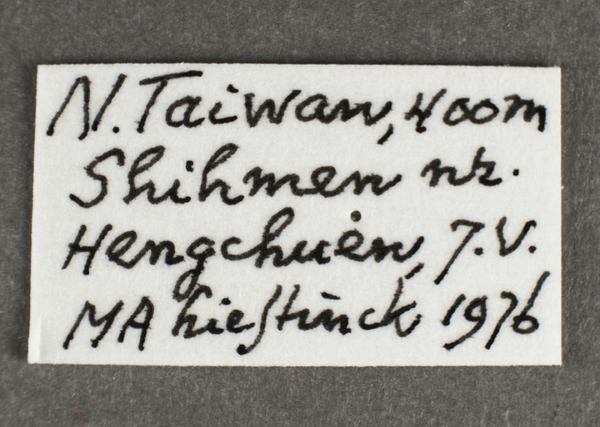 N. Taiwan, 400m
Shihmen nr.
Hengchuèn, 7.V.
MA Lieftinck 1976